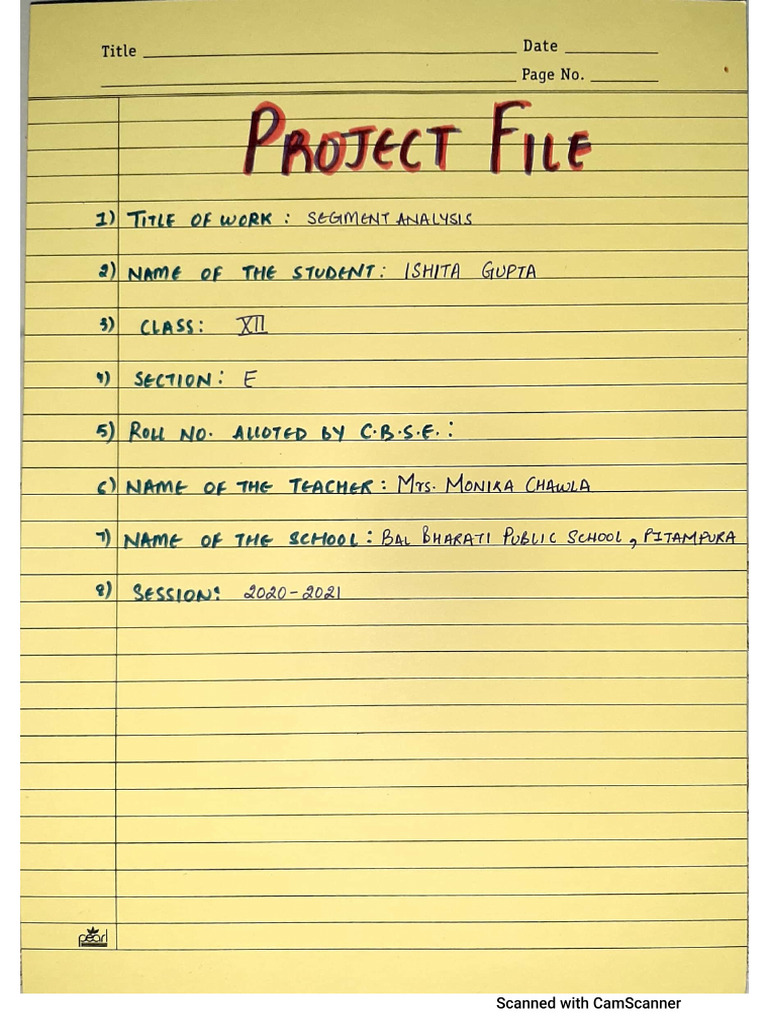 Title Date
Page No.
PROJECT FILE
1) TITLE OF WORK : SEGMENT ANALYSIS
2) NAME OF THE STUDENT : ISHITA GUPTA
3) CLASS : XII
4) SECTION : E
5) ROLL NO. ALLOTED BY C.B.S.E. :
6) NAME OF THE TEACHER : Mrs. MONIKA CHAWLA
7) NAME OF THE SCHOOL : BAL BHARATI PUBLIC SCHOOL, PITAMPURA
8) SESSION : 2020-2021
pearl
Scanned with CamScanner